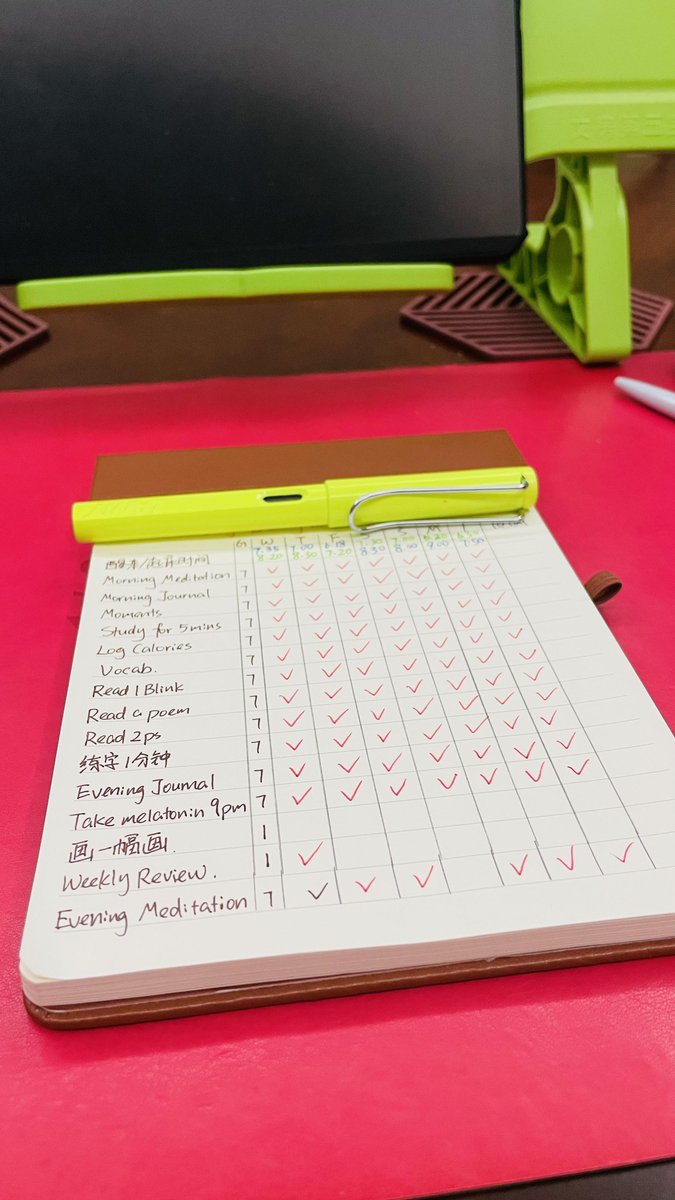 G W T F
醒来/起床时间 7:35 7:00 6:18
8:20 8:30 7:20 8:30 8:00 9:00
Morning Meditation 7
Morning Journal 7
Moments 7
Study for 5mins 7
Log Calories 7
Vocab. 7
Read 1 Blink 7
Read a poem 7
Read 2ps 7
练字1分钟 7
Evening Journal 7
Take melatonin 9pm 7
画一幅画. 1
Weekly Review. 1
Evening Meditation 7